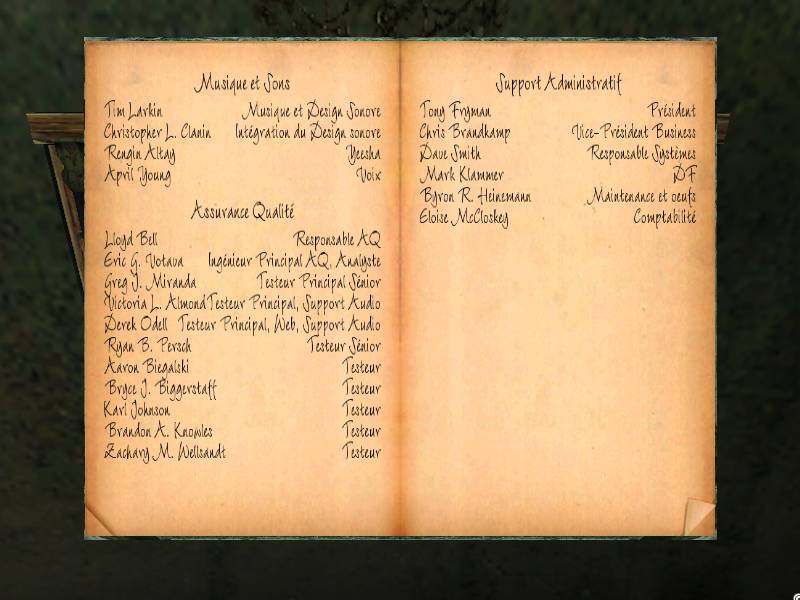 Musique et Sons
Tim Larkin Musique et Design Sonore
Christopher L. Clanin Intégration du Design sonore
Rengin Altay Yeesha
April Young Voix
Assurance Qualité
Lloyd Bell Responsable AQ
Eric G. Votava Ingénieur Principal AQ, Analyste
Greg J. Miranda Testeur Principal Sénior
Victoria L. Almond Testeur Principal, Support Audio
Derek Odell Testeur Principal, Web, Support Audio
Ryan B. Persch Testeur Sénior
Aaron Biegalski Testeur
Bryce J. Biggerstaff Testeur
Karl Johnson Testeur
Brandon A. Knowles Testeur
Zachary M. Wellsandt Testeur
Support Administratif
Tony Fryman Président
Chris Brandkamp Vice-Président Business
Dave Smith Responsable Systèmes
Mark Klammer DF
Byron R. Heinemann Maintenance et oeufs
Eloise McCloskey Comptabilité